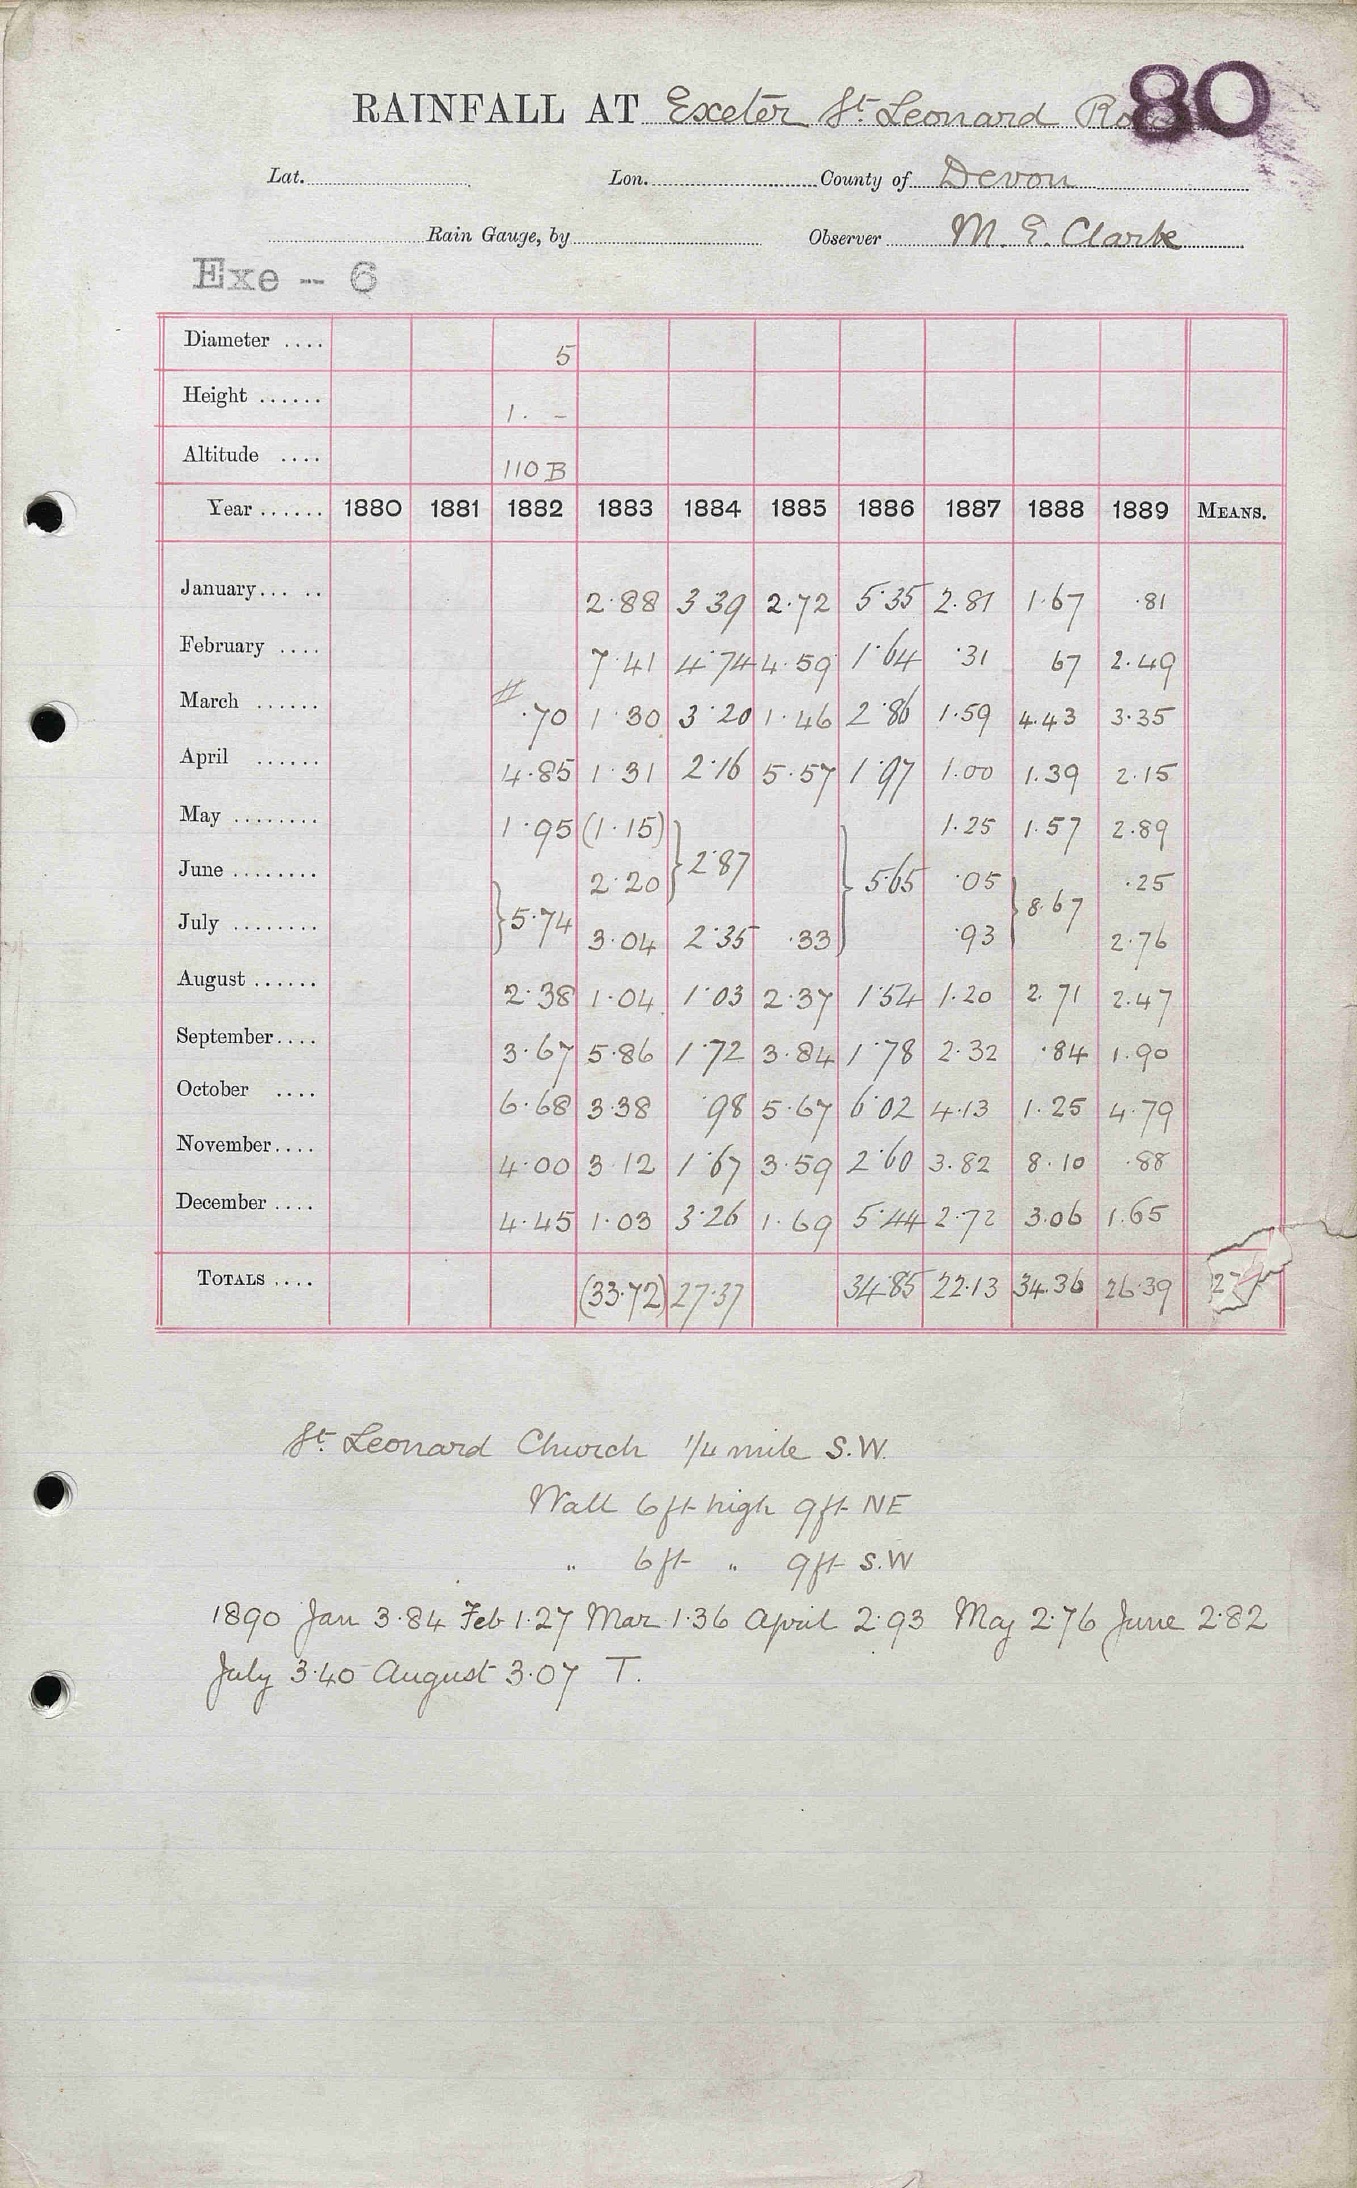 80
RAINFALL AT Exeter St. Leonard
Lat. Lon. County of Devon
Rain Gauge, by Observer M. E. Clarke
Exe - 6
Diameter .... 5
Height ...... 1. -
Altitude .... 110 B
Year ...... 1880 1881 1882 1883 1884 1885 1886 1887 1888 1889 MEANS.
January... .. 2.88 3 39 2.72 5.35 2.81 1.67 .81
February .... 7.41 4.74 4.59 1.64 .31 67 2.49
March ...... # .70 1.30 3.20 1.46 2.86 1.59 4.43 3.35
April ...... 4.85 1.31 2.16 5.57 1.97 1.00 1.39 2.15
May ........ 1.95 (1.15) 1.25 1.57 2.89
June ........ 2.20 } 2.87 } 5.65 .05 .25
July ........ } 5.74 3.04 2.35 .33 .93 } 8.67 2.76
August ...... 2.38 1.04 1.03 2.37 1.54 1.20 2.71 2.47
September.... 3.67 5.86 1.72 3.84 1.78 2.32 .84 1.90
October .... 6.68 3.38 .98 5.67 6.02 4.13 1.25 4.79
November.... 4.00 3.12 1.67 3.59 2.60 3.82 8.10 .88
December .... 4.45 1.03 3.26 1.69 5.44 2.72 3.06 1.65
TOTALS .... (33.72) 27.37 34.85 22.13 34.36 26.39
St. Leonard Church 1/4 mile S.W.
Wall 6 ft high 9 ft NE
" 6 ft " 9 ft S.W
1890 Jan 3.84 Feb 1.27 Mar 1.36 April 2.93 May 2.76 June 2.82
July 3.40 August 3.07 T.